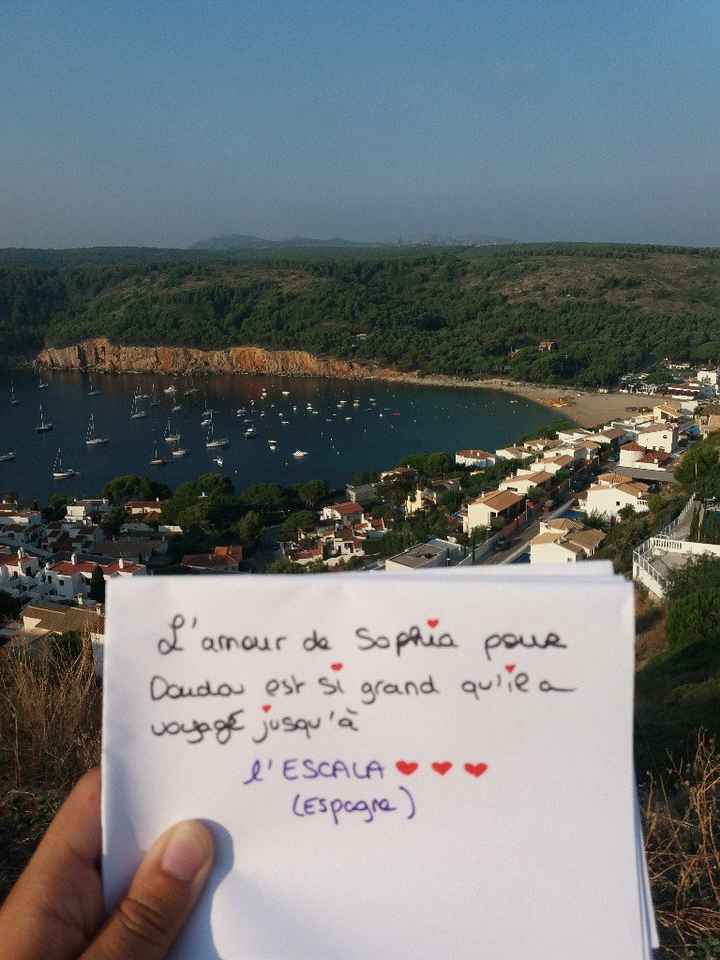 L'amour de Sophia pour
Doudou est si grand qu'il a
voyagé jusqu'à
l'ESCALA
(Espagne)